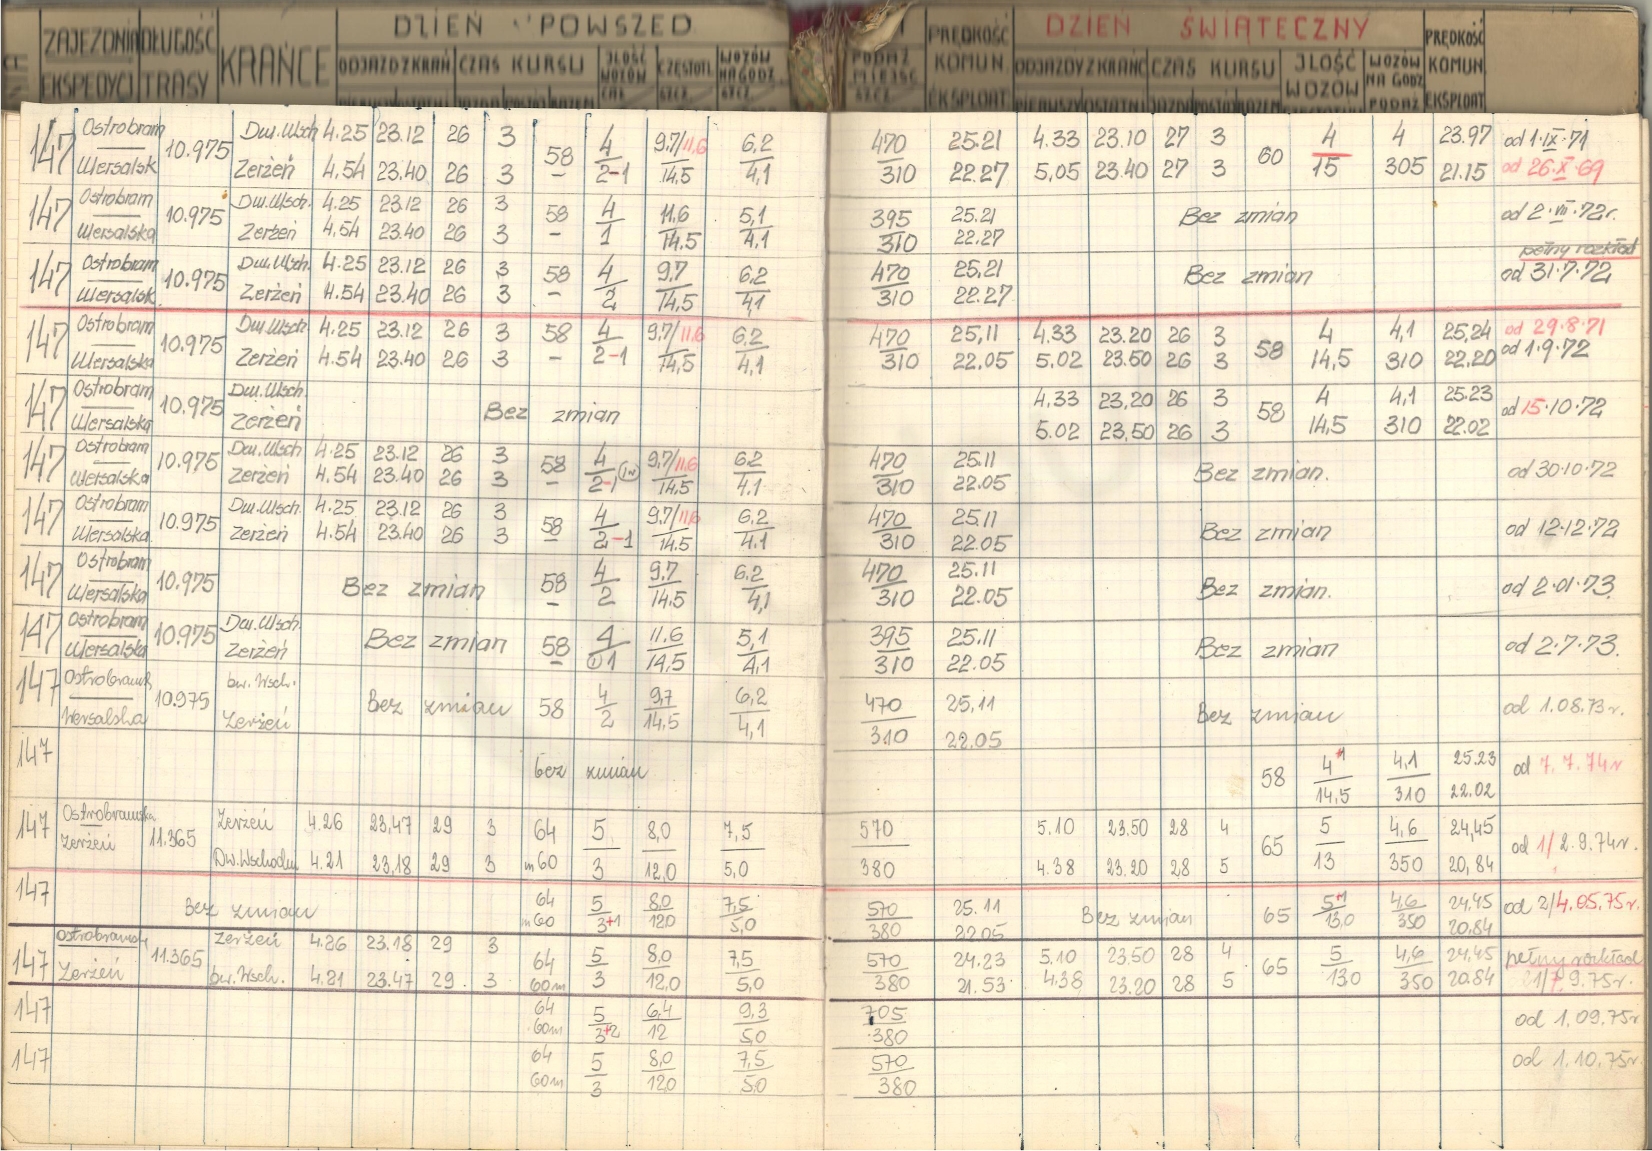 ZAJEZDNIA DŁUGOŚĆ KRAŃCE DZIEŃ POWSZED PRĘDKOŚĆ DZIEŃ ŚWIĄTECZNY PRĘDKOŚĆ
EKSPEDYCJ TRASY ODJAZD Z KRAŃ CZAS KURSU ILOŚĆ WOZÓW CZĘSTOTL WOZÓW NA GODZ SZCZ. PODAŻ MIEJSC SZCZ. KOMUN. EKSPLOAT. ODJAZDY Z KRAŃC CZAS KURSU ILOŚĆ WOZÓW WOZÓW NA GODZ PODAŻ KOMUN. EKSPLOAT.
PIERWSZY OSTATNI JAZDA POSTÓJ RAZEM
147 Ostrobram 10.975 Dw.Wsch 4.25 23.12 26 3 58 4 9.7/11.6 6,2 470 25.21 4.33 23.10 27 3 60 4 4 23.97 od 1·IX·71
Wersalsk Zerzeń 4.54 23.40 26 3 – 2-1 14,5 4,1 310 22.27 5,05 23.40 27 3 15 305 21.15 od 26·X·69
147 Ostrobram 10.975 Dw.Wsch. 4.25 23.12 26 3 58 4 11,6 5,1 395 25.21 Bez zmian od 2·VII·72r.
Wersalska Zerzeń 4.54 23.40 26 3 – 1 14,5 4,1 310 22.27
pełny rozkład
147 Ostrobram 10.975 Dw.Wsch. 4.25 23.12 26 3 58 4 9.7 6,2 470 25,21 Bez zmian od 31·7·72
Wersalsk. Zerżeń 4.54 23.40 26 3 – 2 14,5 4,1 310 22.27
147 Ostrobram 10.975 Dw.Wsch 4.25 23.12 26 3 58 4 9.7/11.6 6.2 470 25,11 4.33 23.20 26 3 58 4 4,1 25,24 od 29·8·71
Wersalska Zerżeń 4.54 23.40 26 3 – 2-1 14,5 4,1 310 22.05 5.02 23.50 26 3 14,5 310 22,20 od 1·9·72
147 Ostrobram 10.975 Dw.Wsch. Bez zmian 4.33 23,20 26 3 58 4 4,1 25.23 od 15·10·72
Wersalska Zerżeń 5.02 23,50 26 3 14,5 310 22.02
147 Ostrobram 10.975 Dw.Wsch 4.25 23.12 26 3 58 4 9.7/11.6 6.2 470 25.11 Bez zmian. od 30·10·72
Wersalska Zerżeń 4.54 23.40 26 3 – 2-1 14.5 4.1 310 22.05
147 Ostrobram 10.975 Dw.Wsch. 4.25 23.12 26 3 58 4 9.7/11.6 6.2 470 25.11 Bez zmian od 12·12·72
Wersalska. Zerżeń 4.54 23.40 26 3 – 2-1 14.5 4.1 310 22.05
147 Ostrobram 10.975 Bez zmian 58 4 9.7 6.2 470 25.11 Bez zmian. od 2·01·73.
Wersalska – 2 14.5 4,1 310 22.05
147 Ostrobram 10.975 Dw.Wsch. Bez zmian 58 4 11.6 5,1 395 25.11 Bez zmian od 2·7·73.
Wersalska Zerżeń – 1 14,5 4,1 310 22.05
147 Ostrobramsk 10.975 Dw. Wsch. Bez zmian 58 4 9,7 6,2 470 25,11 Bez zmian od 1.08.73r.
Wersalska Zerżeń 2 14,5 4,1 310 22.05
147 bez zmian 58 4 4,1 25.23 od 7.7.74r
14,5 310 22.02
147 Ostrobramska 11.365 Zerżeń 4.26 23,47 29 3 64 5 8,0 7,5 570 5.10 23.50 28 4 65 5 4,6 24,45 od 1/2.9.74r.
Zerżeń Dw.Wschodni 4.21 23,18 29 3 m60 3 12,0 5,0 380 4.38 23.20 28 5 13 350 20,84
147 Bez zmian 64 5 8,0 7,5 570 25.11 Bez zmian 65 5 4,6 24,45 od 2/4.05.75r.
m60 3+1 12,0 5,0 380 22.05 13,0 350 20,84
147 Ostrobramsk 11.365 Zerżeń 4.26 23.18 29 3 64 5 8,0 7,5 570 24.23 5.10 23.50 28 4 65 5 4,6 24,45 pełny rozkład
Zerżeń Dw. Wsch. 4.21 23.47 29 3 60m 3 12,0 5,0 380 21.53 4.38 23.20 28 5 13,0 350 20.84 1/7.9.75r.
147 64 5 6,4 9,3 705 od 1.09.75r
60m 3+2 12 5,0 380
147 64 5 8,0 7,5 570 od 1.10.75r
60m 3 12,0 5,0 380